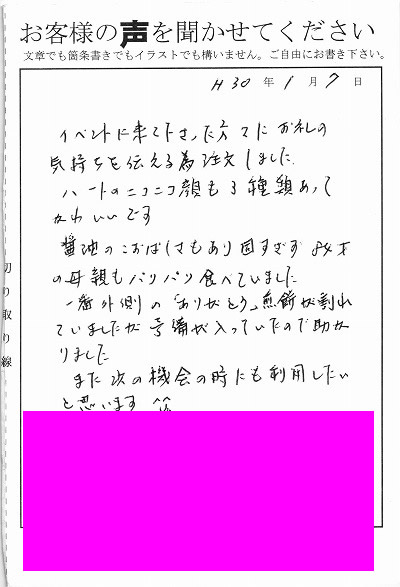 お客様の声を聞かせてください
文章でも箇条書きでもイラストでも構いません。ご自由にお書き下さい。
H30年1月7日
イベントに来て下さった方々に お礼の
気持ちを伝える為 注文しました
ハートのニコニコ顔も3種類あって
かわいいです
醤油のこおばしさもあり固すぎず 84才
の母親もパリパリ食べていました
一番外側の「ありがとう」煎餅が割れ
ていましたが予備が入っていたので助か
りました
また次の機会の時にも利用したい
と思います ^^
切り取り線